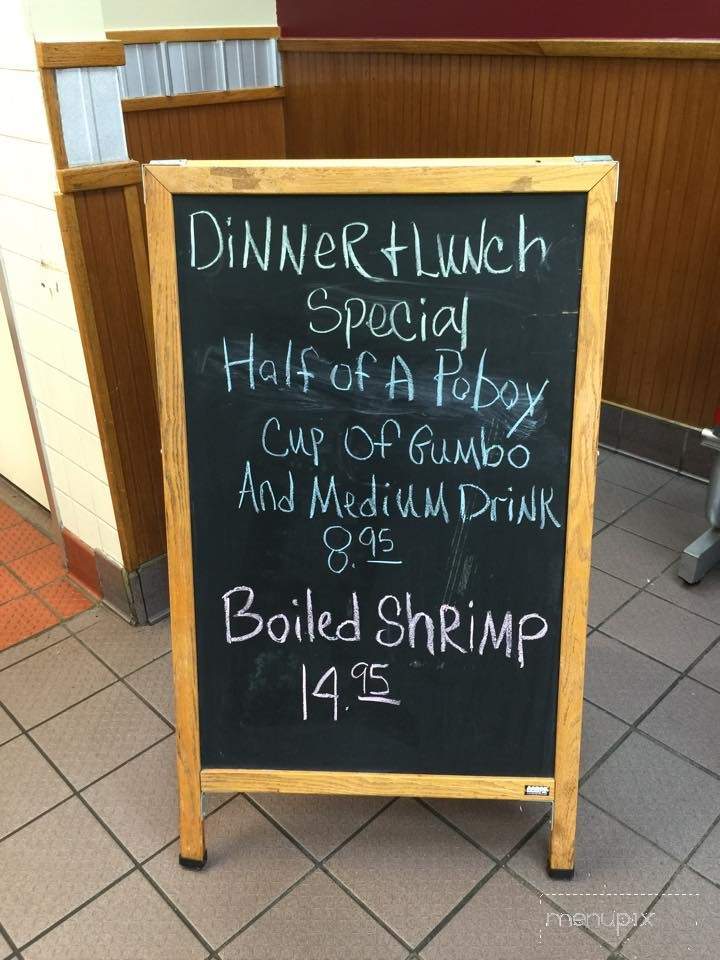 DiNNeR + LUNch
Special
Half of A Poboy
Cup Of Gumbo
And Medium DRiNK
8.95
Boiled ShRiMP
14.95
menupix